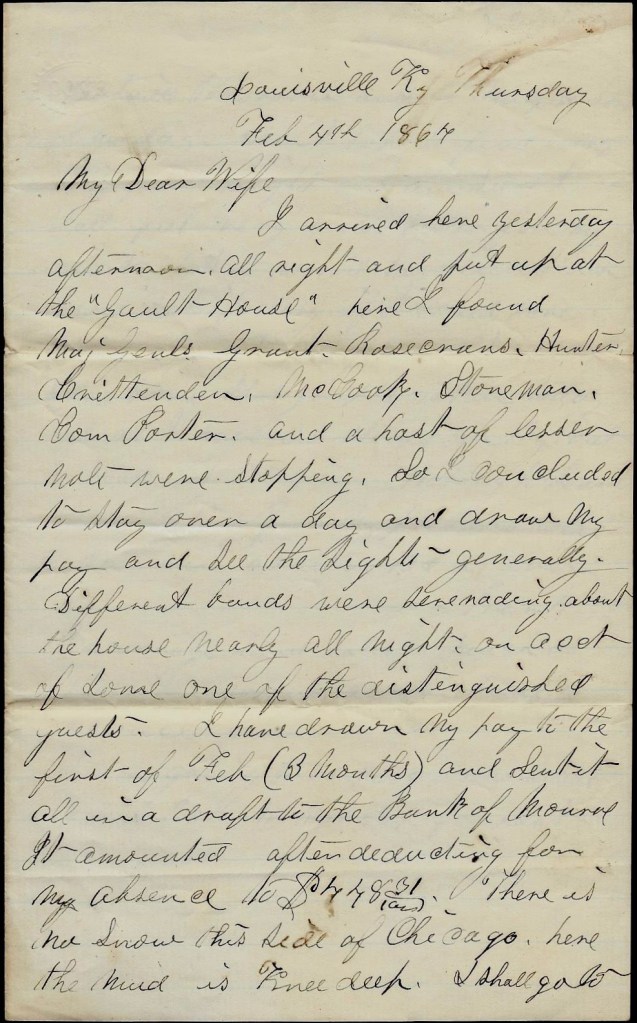 Louisville Ky Thursday
Feb 4th 1864
My Dear Wife
I arrived here yesterday
afternoon. all right and put up at
the "Gault House" here I found
Maj Genls. Grant. Rosecrans. Hunter.
Crittenden. McCook. Stoneman.
Com Porter. and a host of lesser
note were stopping. So I concluded
to stay over a day and draw my
pay and see the sights - generally.
Different bands were serenading about
the house nearly all night. on acct
of some one of the distinguished
guests. I have drawn my pay to the
first of Feb (3 Months) and sent it
all in a draft to the Bank of Monroe
It amounted after deducting for
my absence to $448 31/100. There is
no snow this side of Chicago. here
the mud is Knee deep. I shall go to